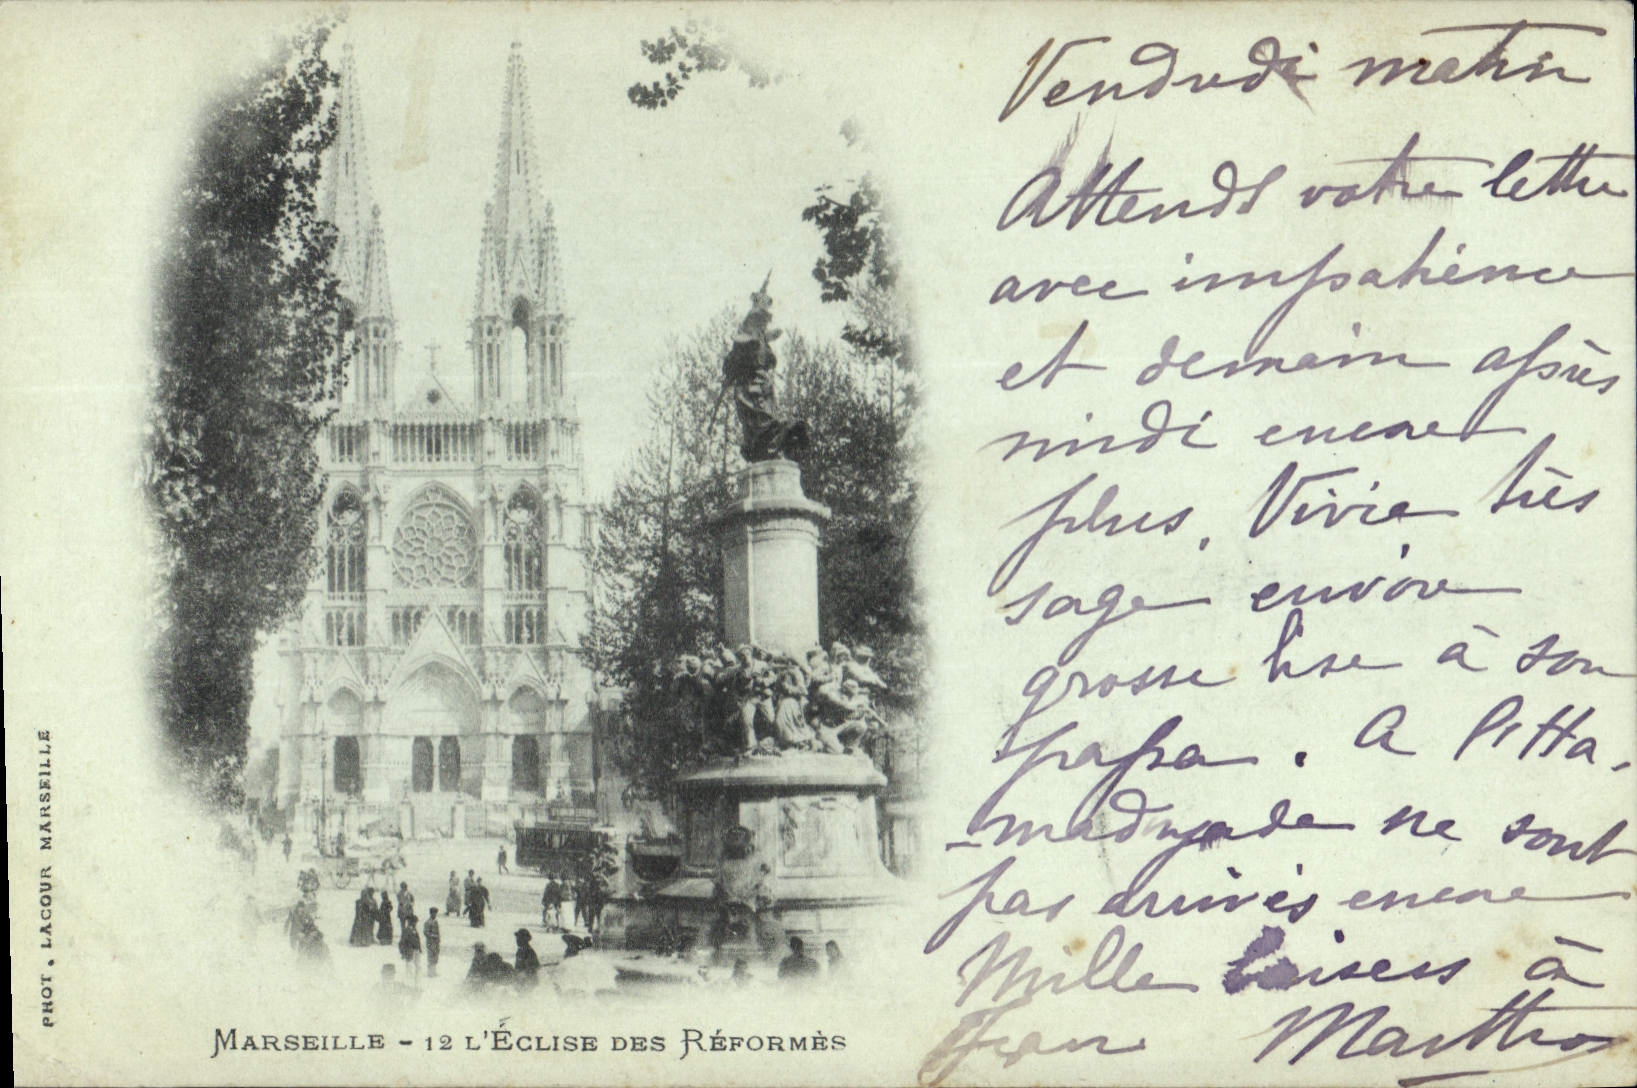 Vendredi matin
Attends votre lettre
avec impatience
et demain après
midi encore
plus. Vivie très
sage envoie
grosse bise à son
papa. A Pitta-
ne sont
pas arrivés encore
Mille baisers à
Jean Marthe
MARSEILLE - 12 L'ÉGLISE DES RÉFORMÈS
PHOT. LACOUR MARSEILLE